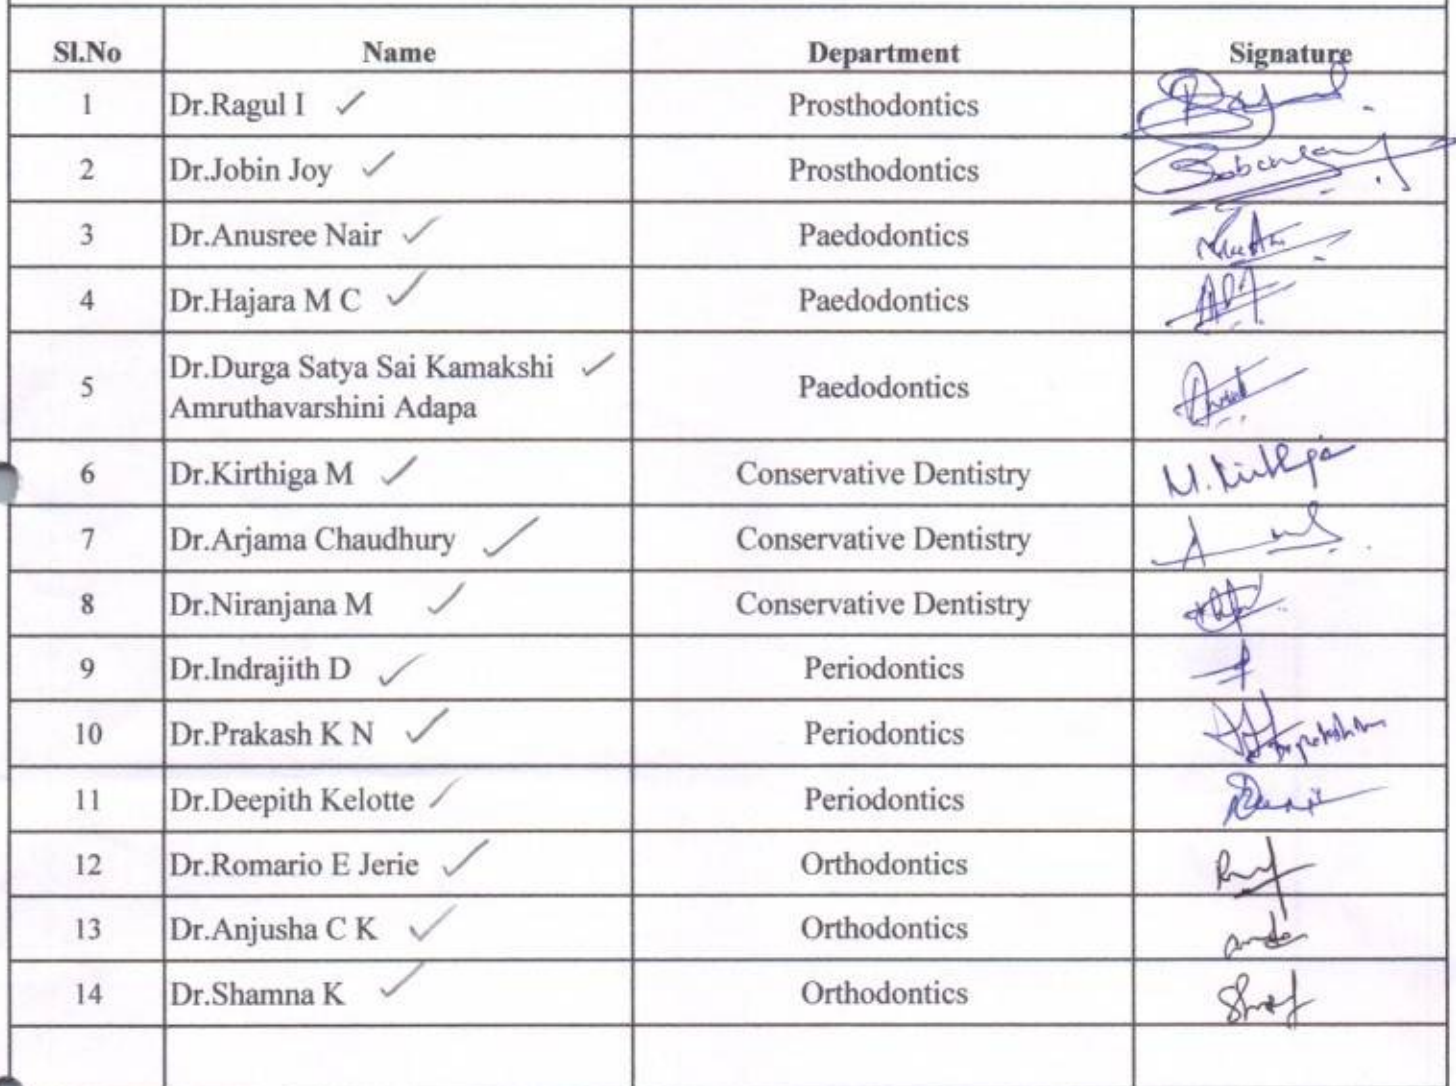 Sl.No Name Department Signature
1 Dr.Ragul I Prosthodontics
2 Dr.Jobin Joy Prosthodontics
3 Dr.Anusree Nair Paedodontics
4 Dr.Hajara M C Paedodontics
5 Dr.Durga Satya Sai Kamakshi Paedodontics
Amruthavarshini Adapa
6 Dr.Kirthiga M Conservative Dentistry M.Kirthiga
7 Dr.Arjama Chaudhury Conservative Dentistry
8 Dr.Niranjana M Conservative Dentistry
9 Dr.Indrajith D Periodontics
10 Dr.Prakash K N Periodontics
11 Dr.Deepith Kelotte Periodontics
12 Dr.Romario E Jerie Orthodontics
13 Dr.Anjusha C K Orthodontics
14 Dr.Shamna K Orthodontics